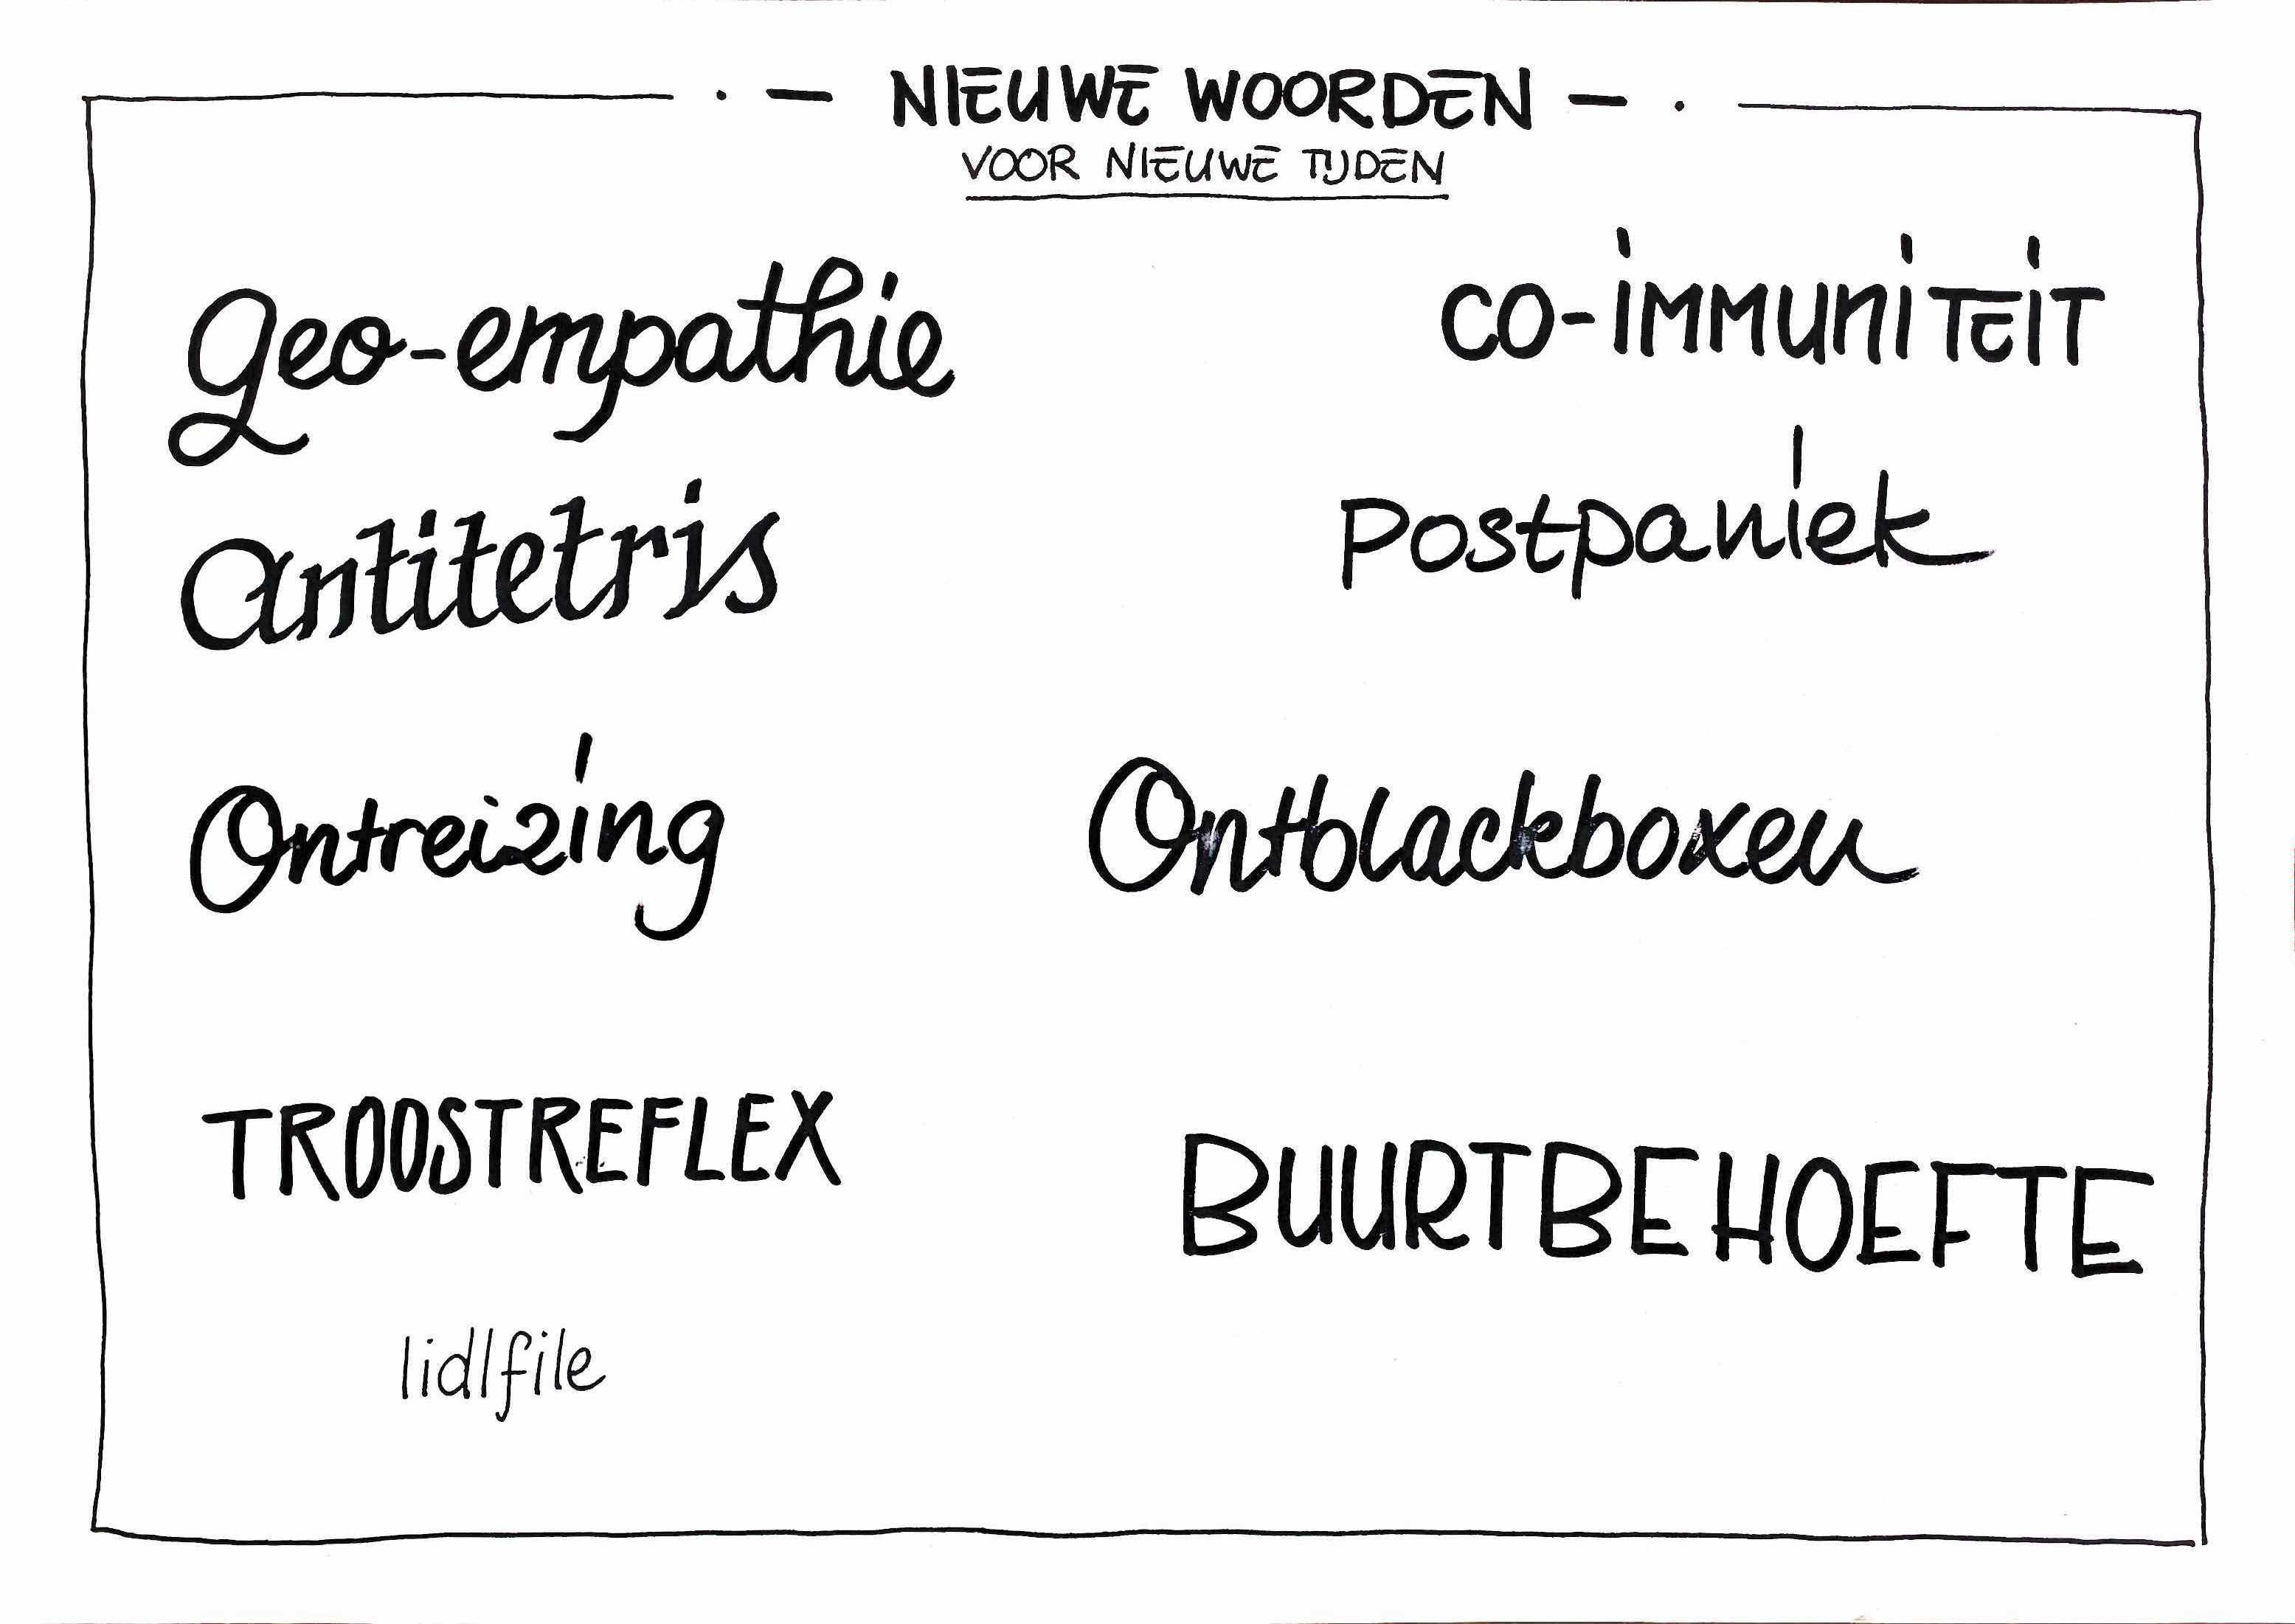 NIEUWE WOORDEN
VOOR NIEUWE TIJDEN
Geo-empathie
CO-IMMUNITEIT
Antitetris
Postpaniek
Ontreizing
Ontblackboxen
TROOSTREFLEX
BUURTBEHOEFTE
lidlfile